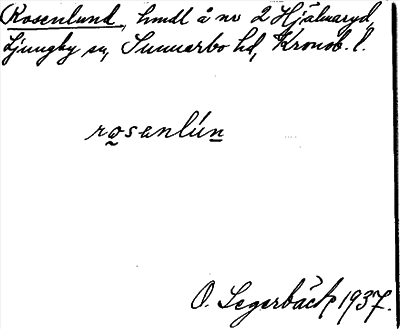 Rosenlund, hmdl å nr 2 Hjälmaryd,
Ljungby sn, Sunnerbo hd, Kronob. l.
rosanlún
O. Segerbäck 1937.